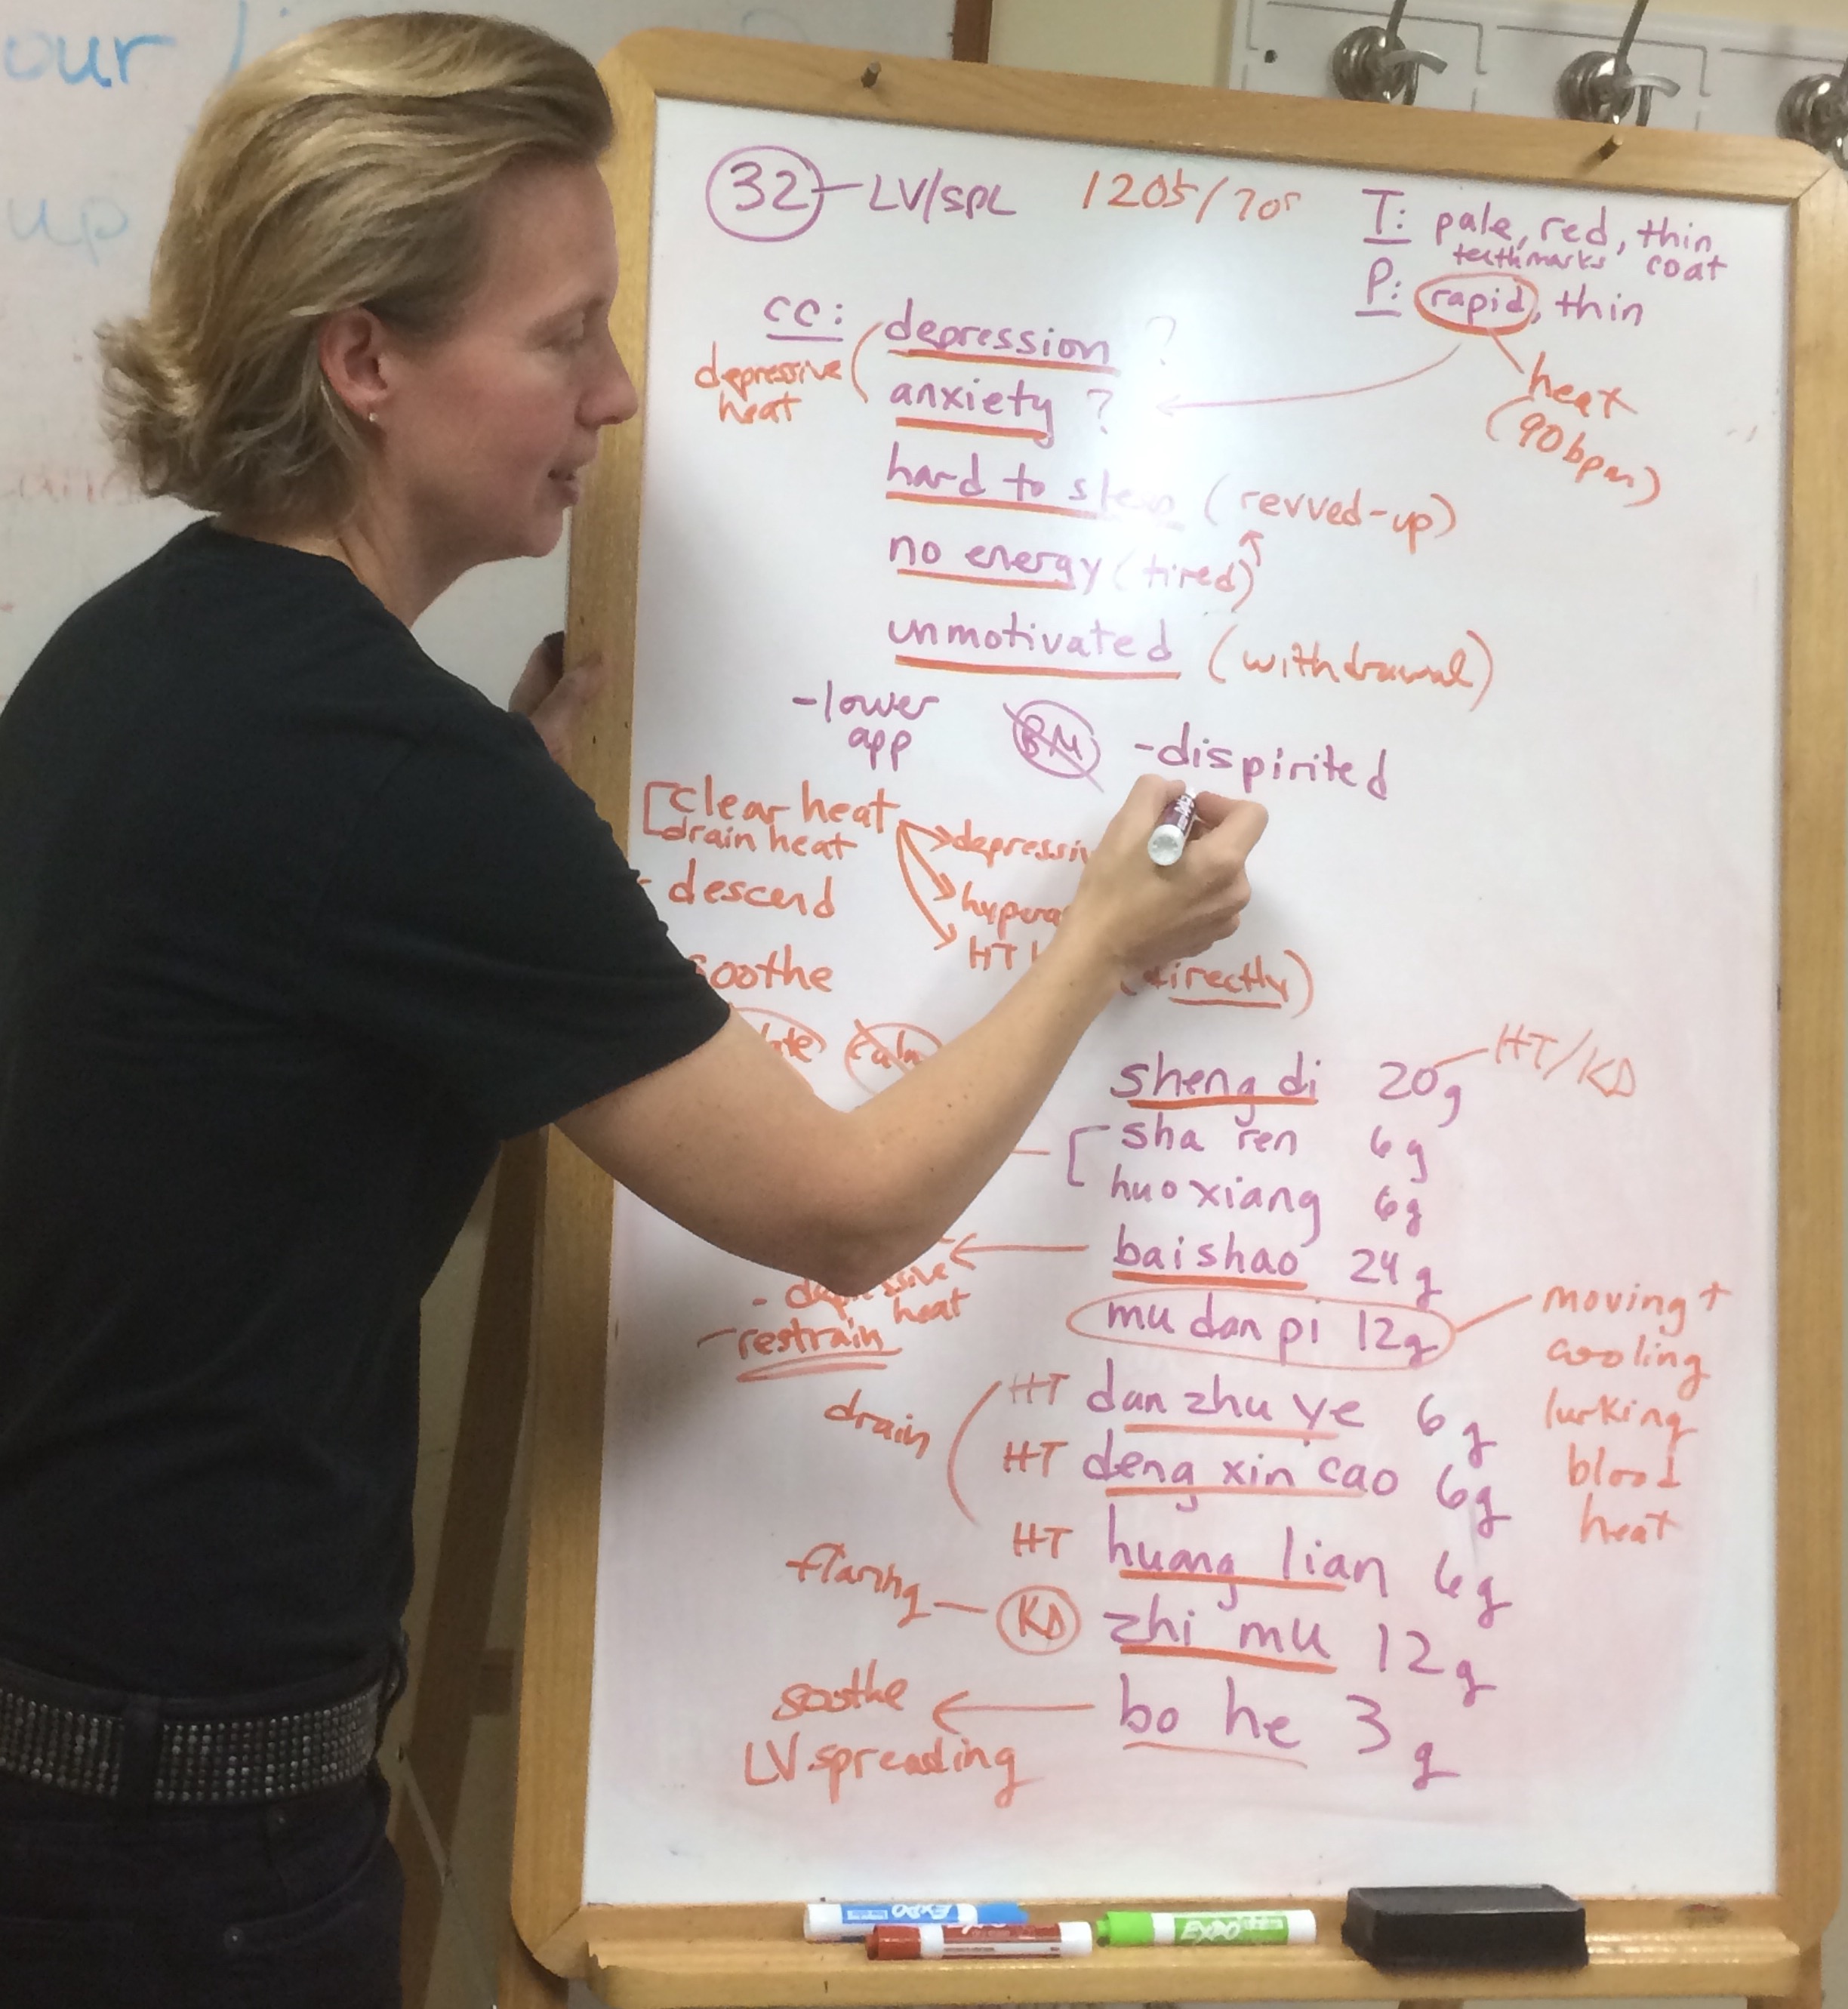 our
up
32 LV/SPL 120s/70s
T: pale, red, thin
teethmarks coat
P: rapid, thin
heat
(90bpm)
cc: depression ?
depressive
heat
anxiety ?
hard to sleep (revved-up)
no energy (tired)
unmotivated (withdrawal)
-lower
app
BM
-dispirited
clear heat
drain heat
- descend
soothe
HT
(directly)
sheng di 20g HT/KD
sha ren 6g
huo xiang 6g
bai shao 24g
heat
- restrain
mu dan pi 12g
moving +
cooling
lurking
blood
heat
drain
HT dan zhu ye 6g
HT deng xin cao 6g
HT huang lian 6g
flaring - KD zhi mu 12g
soothe bo he 3g
LV spreading
EXPO
EXPO